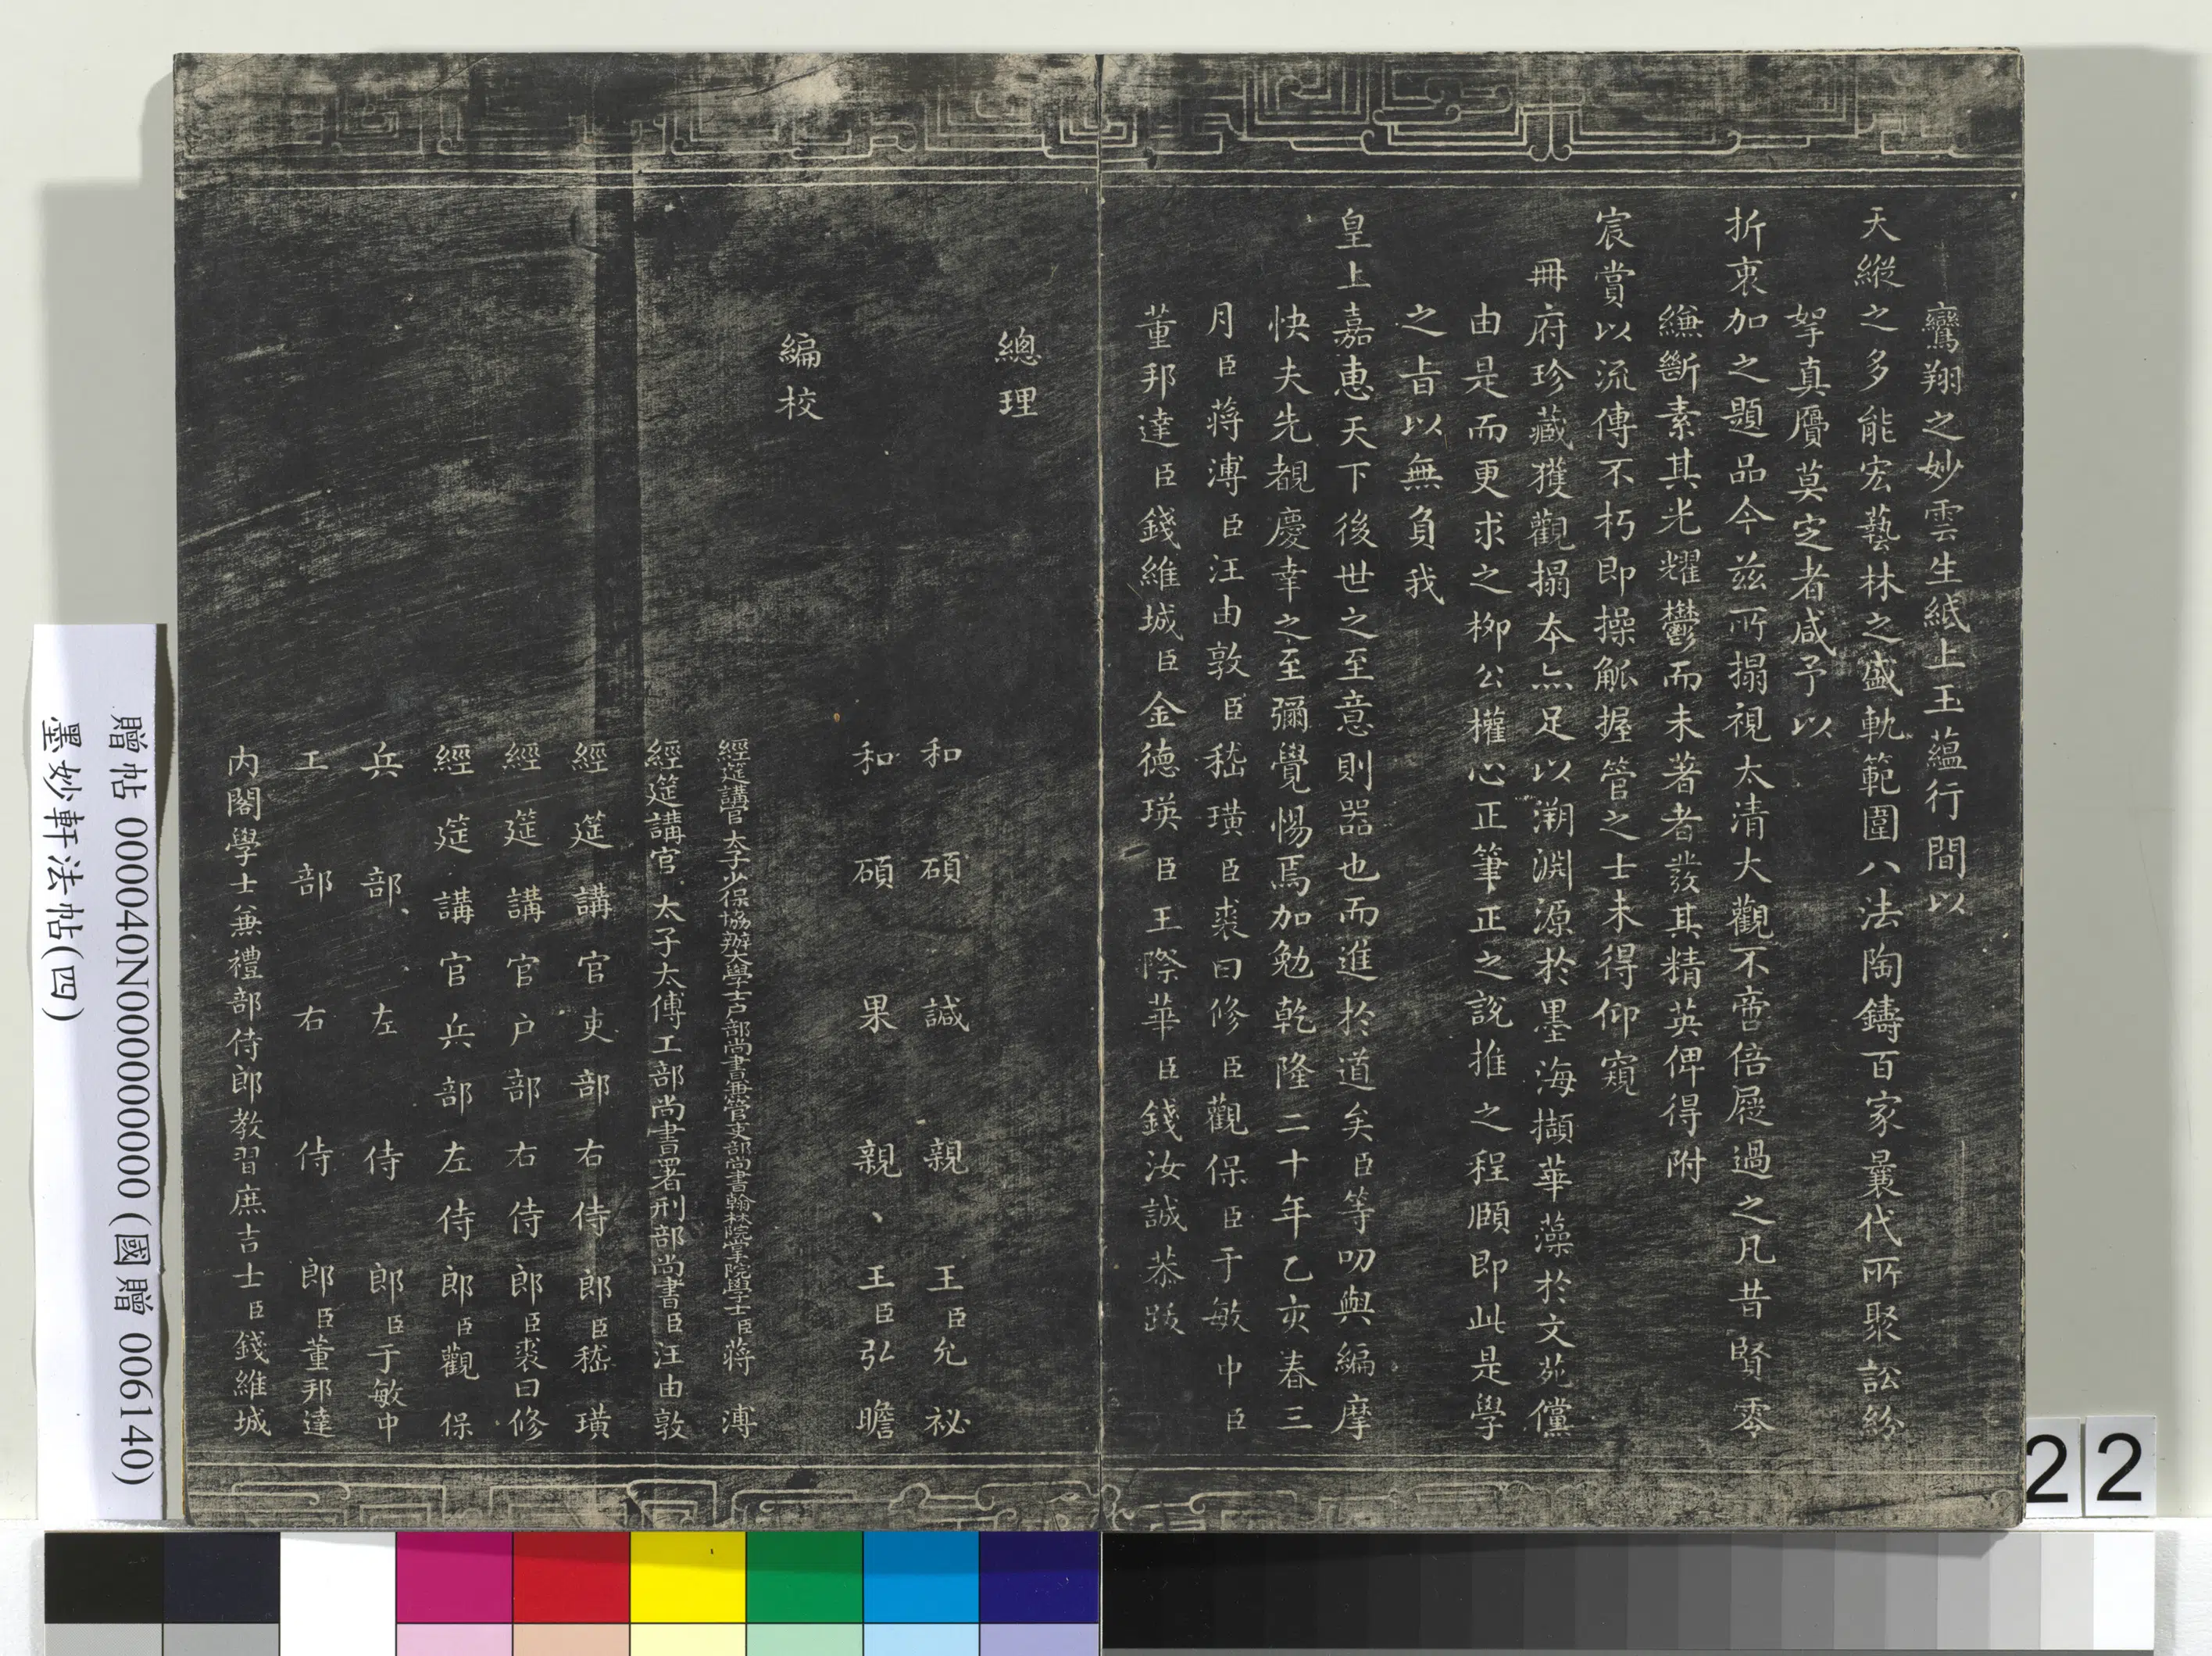 鸞翔之妙雲生紙上玉蘊行間以
天縱之多能宏藝林之盛軌範圍八法陶鑄百家曩代所聚訟紛
挐真贗莫定者咸予以
折衷加之題品今茲所搨視太清大觀不啻倍屣過之凡昔賢零
縑斷素其光耀鬱而未著者發其精英俾得附
宸賞以流傳不朽即操觚握管之士未得仰窺
冊府珍藏獲觀搨本亦足以溯淵源於墨海擷華藻於文苑儻
由是而更求之柳公權心正筆正之說推之程頤即此是學
之旨以無負我
皇上嘉惠天下後世之至意則器也而進於道矣臣等叨與編摩
快夫先覩慶幸之至彌覺惕焉加勉乾隆二十年乙亥春三
月臣蔣溥臣汪由敦臣嵇璜臣裘曰修臣觀保臣于敏中臣
董邦達臣錢維城臣金德瑛臣王際華臣錢汝誠恭跋
總理
和碩諴親王臣允祕
和碩果親王臣弘曕
編校
經筵講官太子少保協辦大學士戶部尚書兼管吏部尚書翰林院掌院學士臣蔣溥
經筵講官太子太傅工部尚書署刑部尚書臣汪由敦
經筵講官吏部右侍郎臣嵇璜
經筵講官戶部右侍郎臣裘曰修
經筵講官兵部左侍郎臣觀保
兵部左侍郎臣于敏中
工部右侍郎臣董邦達
內閣學士兼禮部侍郎教習庶吉士臣錢維城
贈帖 000040N000000000 (國贈 006140)
墨妙軒法帖(四)
22